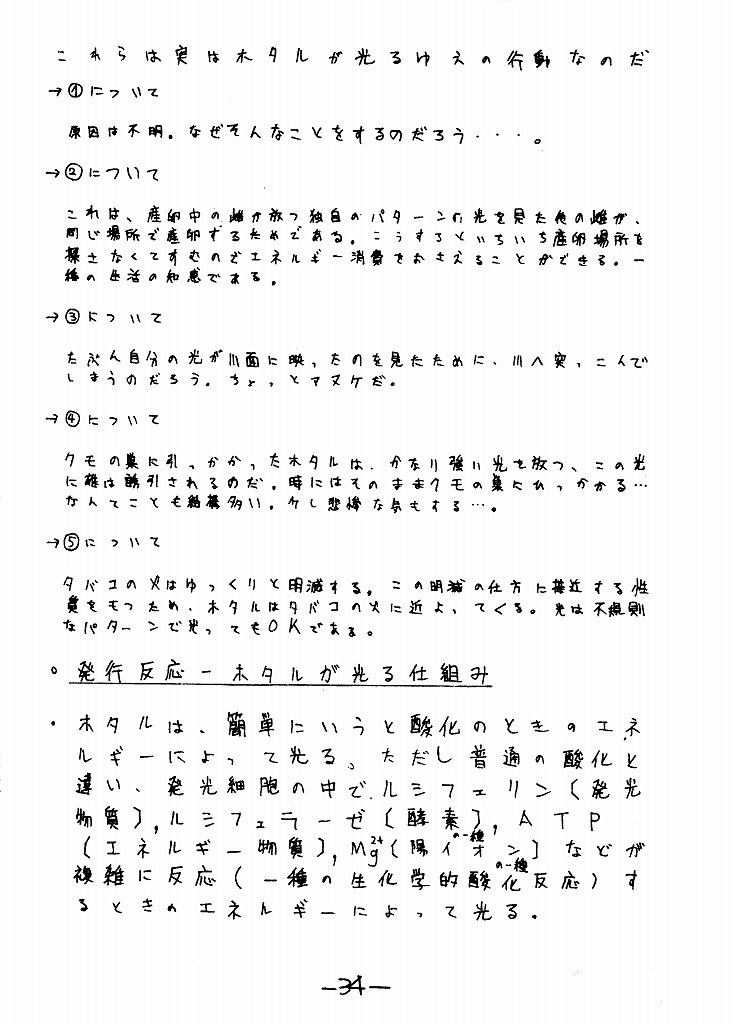 これらは実はホタルが光るゆえの行動なのだ
→①について
原因は不明。なぜそんなことをするのだろう・・・。
→②について
これは、産卵中の雌が放つ独自のパターンの光を見た他の雌が、
同じ場所で産卵するためである。こうするといちいち産卵場所を
探さなくてすむのでエネルギー消費をおさえることができる。一
種の生活の知恵である。
→③について
たぶん自分の光が川面に映ったのを見たために、川へ突っこんで
しまうのだろう。ちょっとマヌケだ。
→④について
クモの巣に引っかかったホタルは、かなり強い光を放つ、この光
に雄は誘引されるのだ。時にはそのままクモの巣にひっかかる…
なんてことも結構多い。少し悲惨な気もする…。
→⑤について
タバコの火はゆっくりと明滅する。この明滅の仕方に接近する性
質をもつため、ホタルはタバコの火に近よってくる。光は不規則
なパターンで光ってもOKである。
○ 発行反応－ホタルが光る仕組み
・ホタルは、簡単にいうと酸化のときのエネ
ルギーによって光る。ただし普通の酸化と
違い、発光細胞の中で、ルシフェリン(発光
物質),ルシフェラーゼ(酵素),ATP
(エネルギー物質),Mg²⁺(陽イオンの一種)などが
複雑に反応(一種の生化学的酸化反応の一種)す
るときのエネルギーによって光る。
－34－